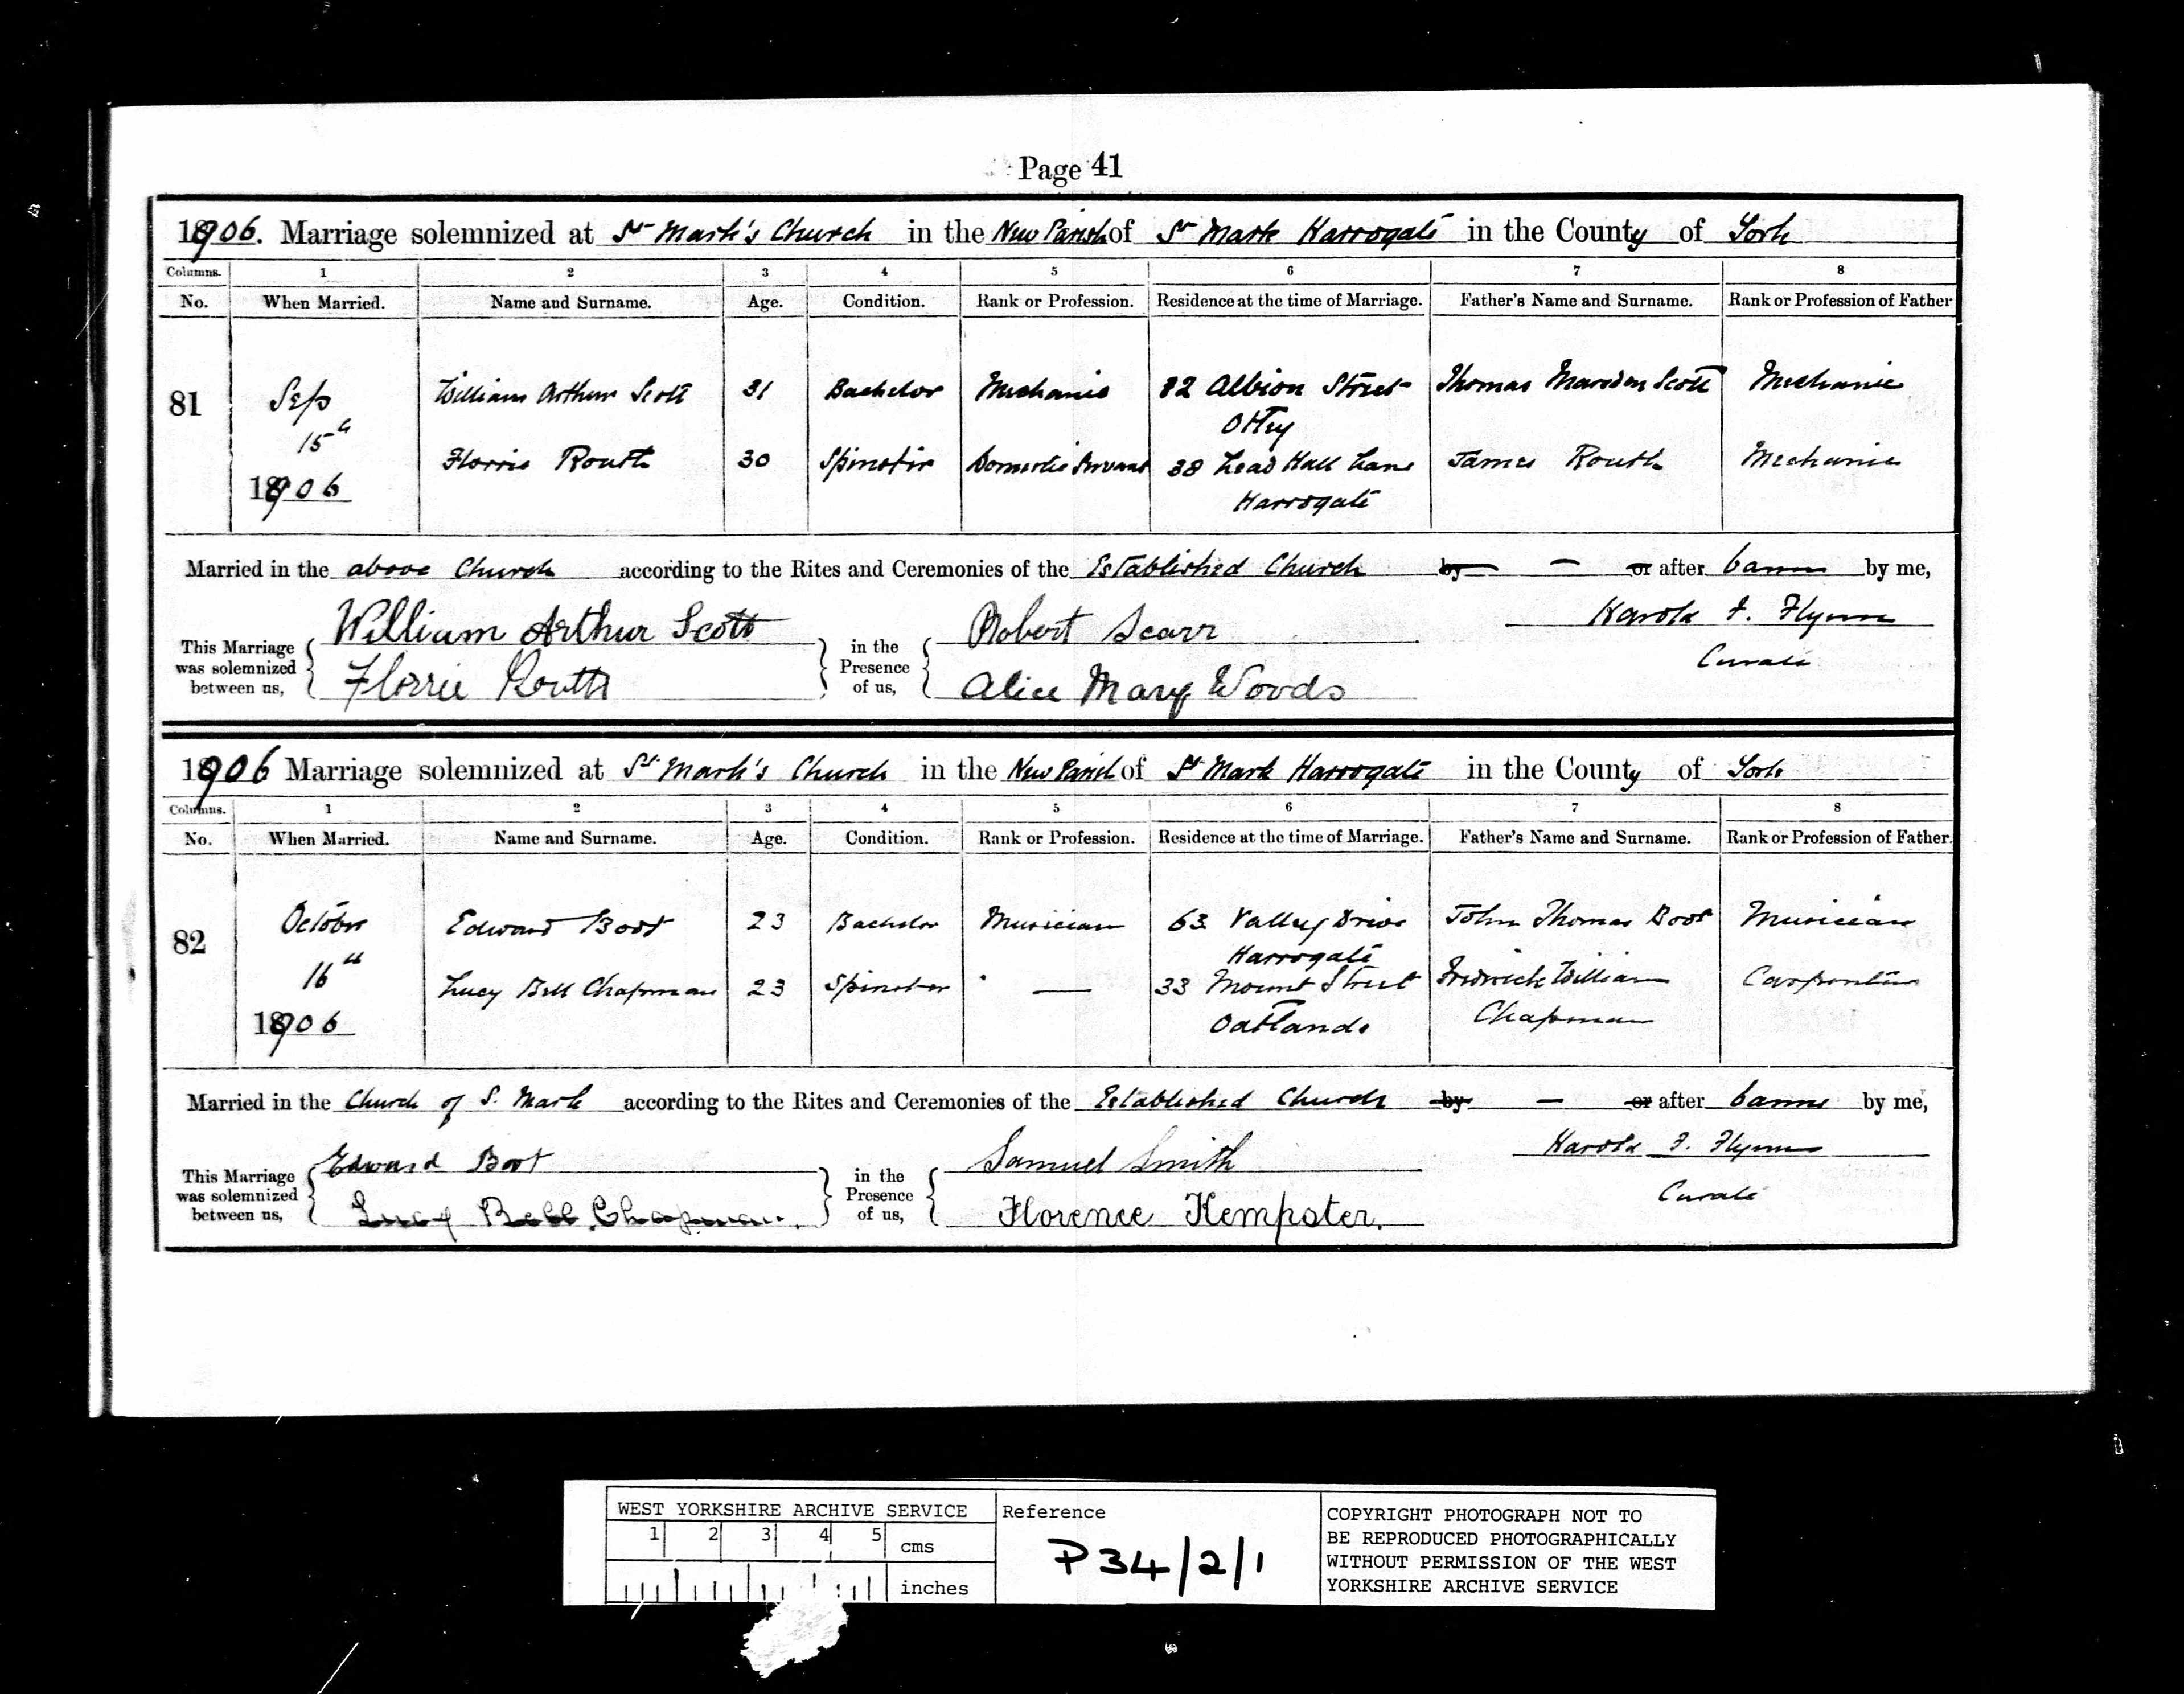 Page 41
1906. Marriage solemnized at St Mark's Church in the New Parish of St Mark Harrogate in the County of York
Columns. 1 2 3 4 5 6 7 8
No. When Married. Name and Surname. Age. Condition. Rank or Profession. Residence at the time of Marriage. Father's Name and Surname. Rank or Profession of Father
81 Sep William Arthur Scott 31 Bachelor Mechanic 82 Albion Street Thomas Marsden Scott Mechanic
15th Otley
Florrie Routh 30 Spinster Domestic Servant 38 Lead Hall Lane James Routh Mechanic
1906 Harrogate
Married in the above Church according to the Rites and Ceremonies of the Established Church by — or after banns by me,
William Arthur Scott Robert Scarr Harold F. Flynn
This Marriage was solemnized between us, in the Presence of us,
Florrie Routh Alice Mary Woods Curate
1906 Marriage solemnized at St Mark's Church in the New Parish of St Mark Harrogate in the County of York
Columns. 1 2 3 4 5 6 7 8
No. When Married. Name and Surname. Age. Condition. Rank or Profession. Residence at the time of Marriage. Father's Name and Surname. Rank or Profession of Father.
82 October Edward Boot 23 Bachelor Musician 63 Valley Drive John Thomas Boot Musician
Harrogate
16th Lucy Bell Chapman 23 Spinster — 33 Mount Street Fredrick William Carpenter
1906 Oatlands Chapman
Married in the Church of S. Mark according to the Rites and Ceremonies of the Established Church by — or after banns by me,
Edward Boot Samuel Smith Harold F. Flynn
This Marriage was solemnized between us, in the Presence of us,
Lucy Bell Chapman. Florence Kempster. Curate
WEST YORKSHIRE ARCHIVE SERVICE
1 2 3 4 5 cms
inches
Reference
P34/2/1
COPYRIGHT PHOTOGRAPH NOT TO
BE REPRODUCED PHOTOGRAPHICALLY
WITHOUT PERMISSION OF THE WEST
YORKSHIRE ARCHIVE SERVICE